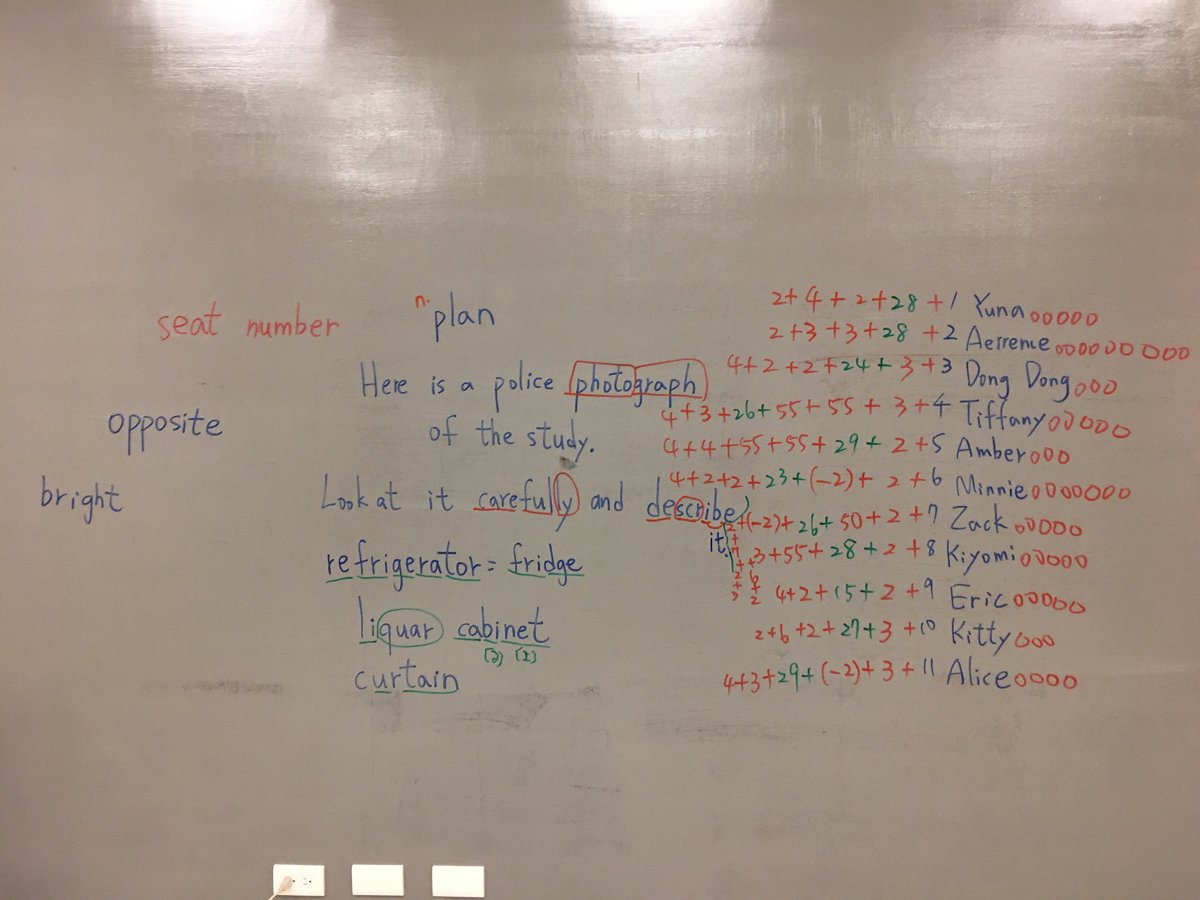 seat number
n. plan
Here is a police photograph
of the study.
opposite
bright
Look at it carefully and describe
it.
refrigerator = fridge
liquar cabinet
[ə] [ɪ]
curtain
2+4+2+28+1 Yuna ooooo
2+3+3+28+2 Aerrene ooooooooo
4+2+2+24+3+3 Dong Dong ooo
4+3+26+55+55+3+4 Tiffany ooooo
4+4+55+55+29+2+5 Amber ooo
4+2+2+23+(-2)+2+6 Minnie ooooooo
2+(-2)+26+50+2+7 Zack ooooo
3+55+28+2+8 Kiyomi ooooo
4+2+15+2+9 Eric ooooo
2+6+2+27+3+10 Kitty ooo
4+3+29+(-2)+3+11 Alice oooo